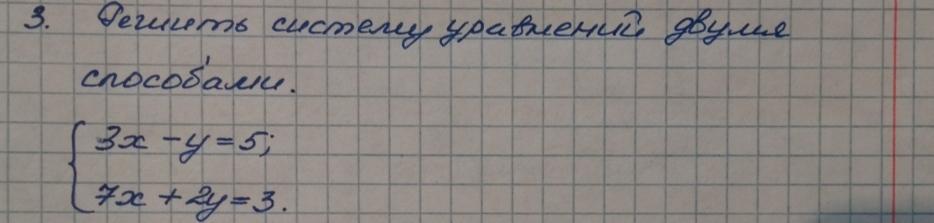 3. Решить систему уравнений двумя
способами.
3x - y = 5;
7x + 2y = 3.